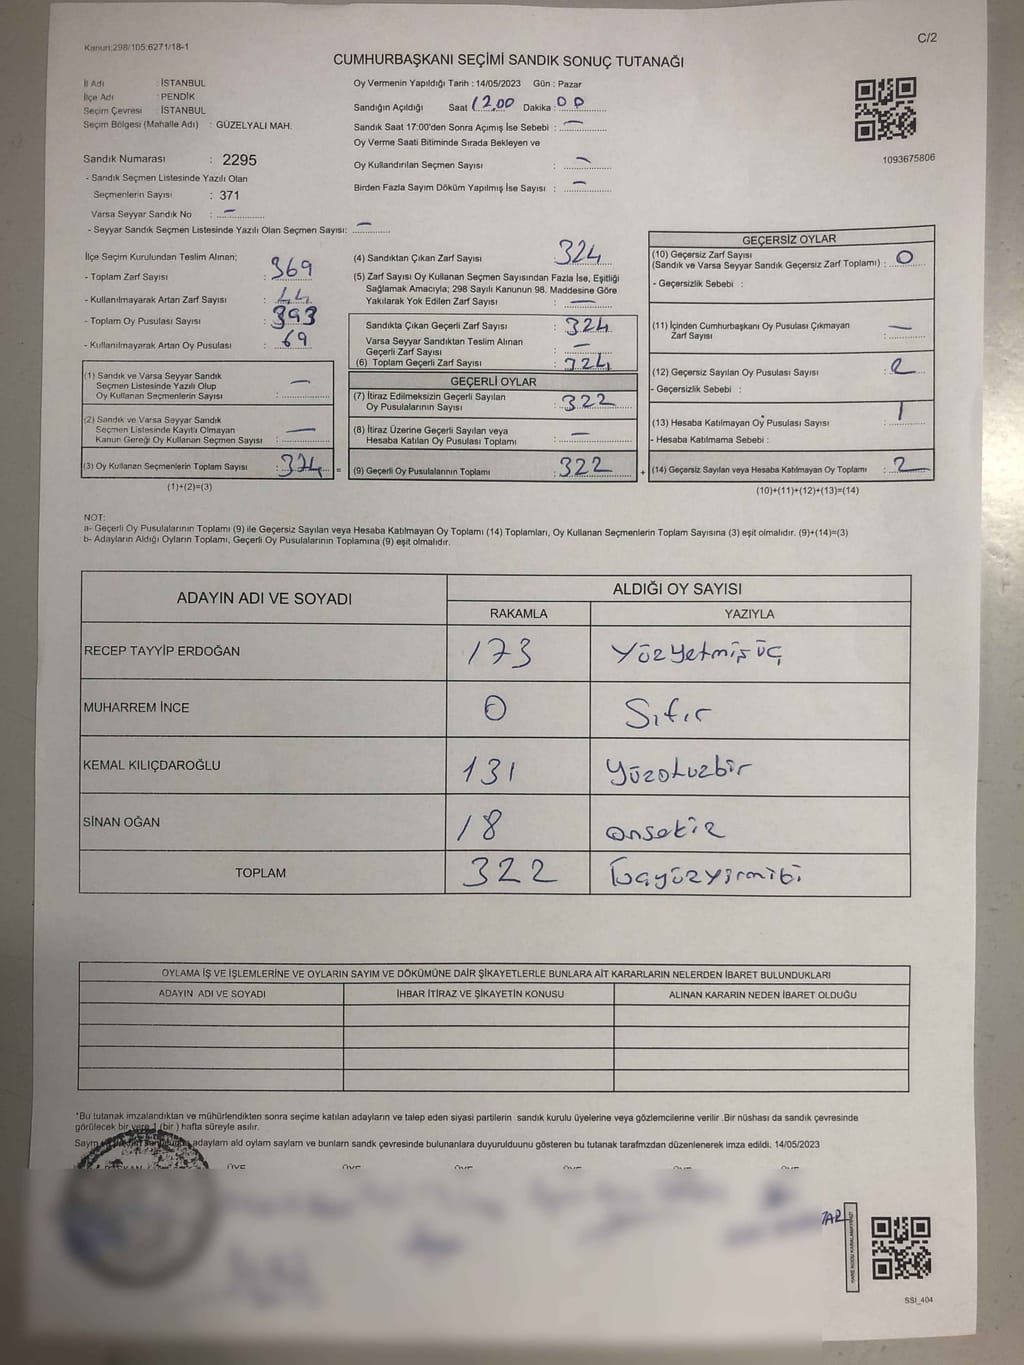 Kanun:298/105:6271/18-1
C/2
CUMHURBAŞKANI SEÇİMİ SANDIK SONUÇ TUTANAĞI
İl Adı : İSTANBUL
İlçe Adı : PENDİK
Seçim Çevresi : İSTANBUL
Seçim Bölgesi (Mahalle Adı) : GÜZELYALI MAH.
Sandık Numarası : 2295
- Sandık Seçmen Listesinde Yazılı Olan
Seçmenlerin Sayısı : 371
Varsa Seyyar Sandık No : –
- Seyyar Sandık Seçmen Listesinde Yazılı Olan Seçmen Sayısı: –
Oy Vermenin Yapıldığı Tarih : 14/05/2023 Gün : Pazar
Sandığın Açıldığı Saat Dakika : 00
Sandık Saat 17:00'den Sonra Açımış İse Sebebi : –
Oy Verme Saati Bitiminde Sırada Bekleyen ve
Oy Kullandırılan Seçmen Sayısı : –
Birden Fazla Sayım Döküm Yapılmış İse Sayısı : –
1093675806
İlçe Seçim Kurulundan Teslim Alınan;
- Toplam Zarf Sayısı : 369
- Kullanılmayarak Artan Zarf Sayısı :
- Toplam Oy Pusulası Sayısı : 393
- Kullanılmayarak Artan Oy Pusulası : 69
(1) Sandık ve Varsa Seyyar Sandık
Seçmen Listesinde Yazılı Olup
Oy Kullanan Seçmenlerin Sayısı : –
(2) Sandık ve Varsa Seyyar Sandık
Seçmen Listesinde Kayıtlı Olmayan
Kanun Gereği Oy Kullanan Seçmen Sayısı : –
(3) Oy Kullanan Seçmenlerin Toplam Sayısı : 324 =
(1)+(2)=(3)
(4) Sandıktan Çıkan Zarf Sayısı 324
(5) Zarf Sayısı Oy Kullanan Seçmen Sayısından Fazla İse, Eşitliği
Sağlamak Amacıyla; 298 Sayılı Kanunun 98. Maddesine Göre
Yakılarak Yok Edilen Zarf Sayısı : –
Sandıkta Çıkan Geçerli Zarf Sayısı : 324
Varsa Seyyar Sandıktan Teslim Alınan
Geçerli Zarf Sayısı : –
(6) Toplam Geçerli Zarf Sayısı : 324
GEÇERLİ OYLAR
(7) İtiraz Edilmeksizin Geçerli Sayılan
Oy Pusulalarının Sayısı : 322
(8) İtiraz Üzerine Geçerli Sayılan veya
Hesaba Katılan Oy Pusulası Toplamı : –
(9) Geçerli Oy Pusulalarının Toplamı : 322 +
GEÇERSİZ OYLAR
(10) Geçersiz Zarf Sayısı
(Sandık ve Varsa Seyyar Sandık Geçersiz Zarf Toplamı) : 0
- Geçersizlik Sebebi :
(11) İçinden Cumhurbaşkanı Oy Pusulası Çıkmayan
Zarf Sayısı : –
(12) Geçersiz Sayılan Oy Pusulası Sayısı : 2
- Geçersizlik Sebebi :
(13) Hesaba Katılmayan Oy Pusulası Sayısı :
- Hesaba Katılmama Sebebi :
(14) Geçersiz Sayılan veya Hesaba Katılmayan Oy Toplamı : 2
(10)+(11)+(12)+(13)=(14)
NOT:
a- Geçerli Oy Pusulalarının Toplamı (9) ile Geçersiz Sayılan veya Hesaba Katılmayan Oy Toplamı (14) Toplamları, Oy Kullanan Seçmenlerin Toplam Sayısına (3) eşit olmalıdır. (9)+(14)=(3)
b- Adayların Aldığı Oyların Toplamı, Geçerli Oy Pusulalarının Toplamına (9) eşit olmalıdır.
ADAYIN ADI VE SOYADI
ALDIĞI OY SAYISI
RAKAMLA YAZIYLA
RECEP TAYYİP ERDOĞAN 173 Yüzyetmişüç
MUHARREM İNCE 0 Sıfır
KEMAL KILIÇDAROĞLU 131 Yüzotuzbir
SİNAN OĞAN 18 onsekiz
TOPLAM 322
OYLAMA İŞ VE İŞLEMLERİNE VE OYLARIN SAYIM VE DÖKÜMÜNE DAİR ŞİKAYETLERLE BUNLARA AİT KARARLARIN NELERDEN İBARET BULUNDUKLARI
ADAYIN ADI VE SOYADI İHBAR İTİRAZ VE ŞİKAYETİN KONUSU ALINAN KARARIN NEDEN İBARET OLDUĞU
*Bu tutanak imzalandıktan ve mühürlendikten sonra seçime katılan adayların ve talep eden siyasi partilerin sandık kurulu üyelerine veya gözlemcilerine verilir .Bir nüshası da sandık çevresinde
görülecek bir yere 1 (bir ) hafta süreyle asılır.
Sayım adaylarn ald oylarn sayların ve bunların sandk çevresinde bulunanlara duyurulduunu gösteren bu tutanak tarafmzdan düzenlenerek imza edildi. 14/05/2023
ÜYE ÜYE ÜYE ÜYE ÜYE ÜYE
SSI_404